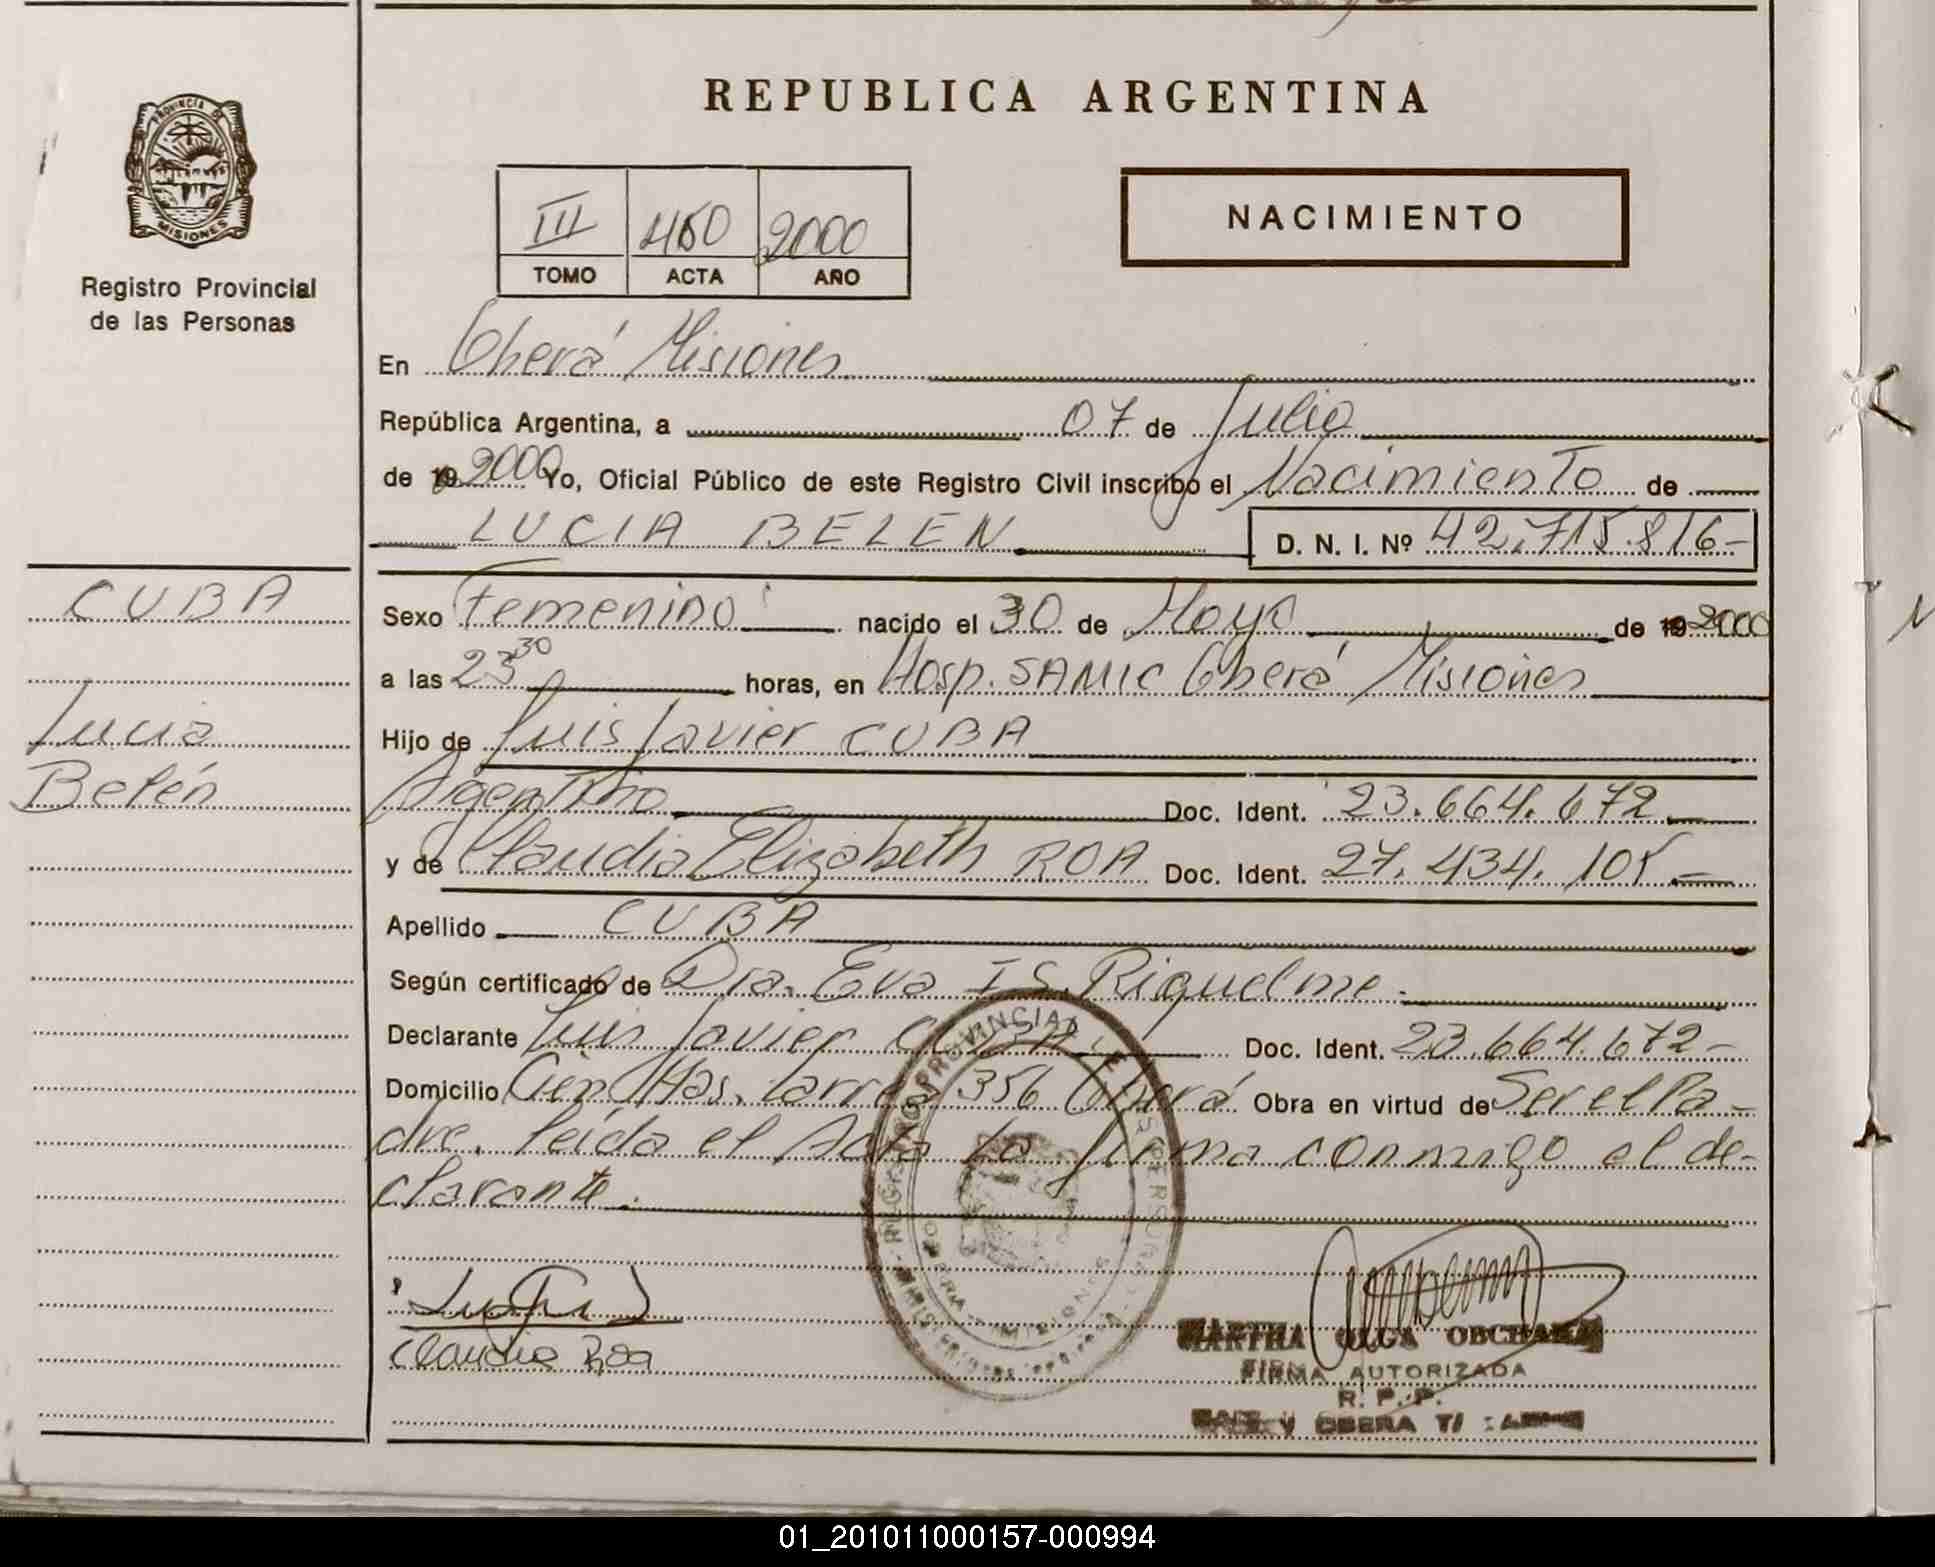 PROVINCIA DE
MISIONES
Registro Provincial
de las Personas
REPUBLICA ARGENTINA
III 450 2000
TOMO ACTA AÑO
NACIMIENTO
En Oberá Misiones
República Argentina, a 07 de Julio
de 19 2000 Yo, Oficial Público de este Registro Civil inscribo el Nacimiento de
LUCIA BELEN D. N. I. Nº 42.715.816-
CUBA
Lucia
Belén
Sexo Femenino nacido el 30 de Mayo de 19 2000
a las 23 30 horas, en Hosp. SAMIC Oberá Misiones
Hijo de Luis Javier CUBA
Argentino Doc. Ident. 23.664.672.
y de Claudia Elizabeth ROA Doc. Ident. 27.434.105
Apellido CUBA
Según certificado de Dra. Eva I S. Riquelme.
Declarante Luis Javier CUBA Doc. Ident. 23.664.672-
Domicilio Cien Has. 356 Oberá Obra en virtud de Ser el Pa-
dre. leída el Acta la firma conmigo el de-
clarante.
Claudia Roa
MARTHA OLGA
FIRMA AUTORIZADA
R. P. P.
OBERA
01_201011000157-000994